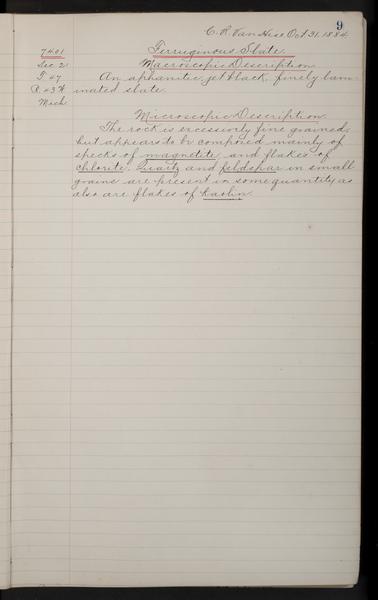 9
C. R. Van Hise Oct 31. 1884
7401
Ferruginous Slate.
Sec 21
Macroscopic Description
T 47
An aphanitic, jet black, finely lam-
R 43 W
inated slate.
Mich
Microscopic Description.
The rock is excessively fine grained,
but appears to be composed mainly of
specks of magnetite and flakes of
chlorite. Quartz and feldspar in small
grains are present in some quantity as
also are flakes of kaolin.